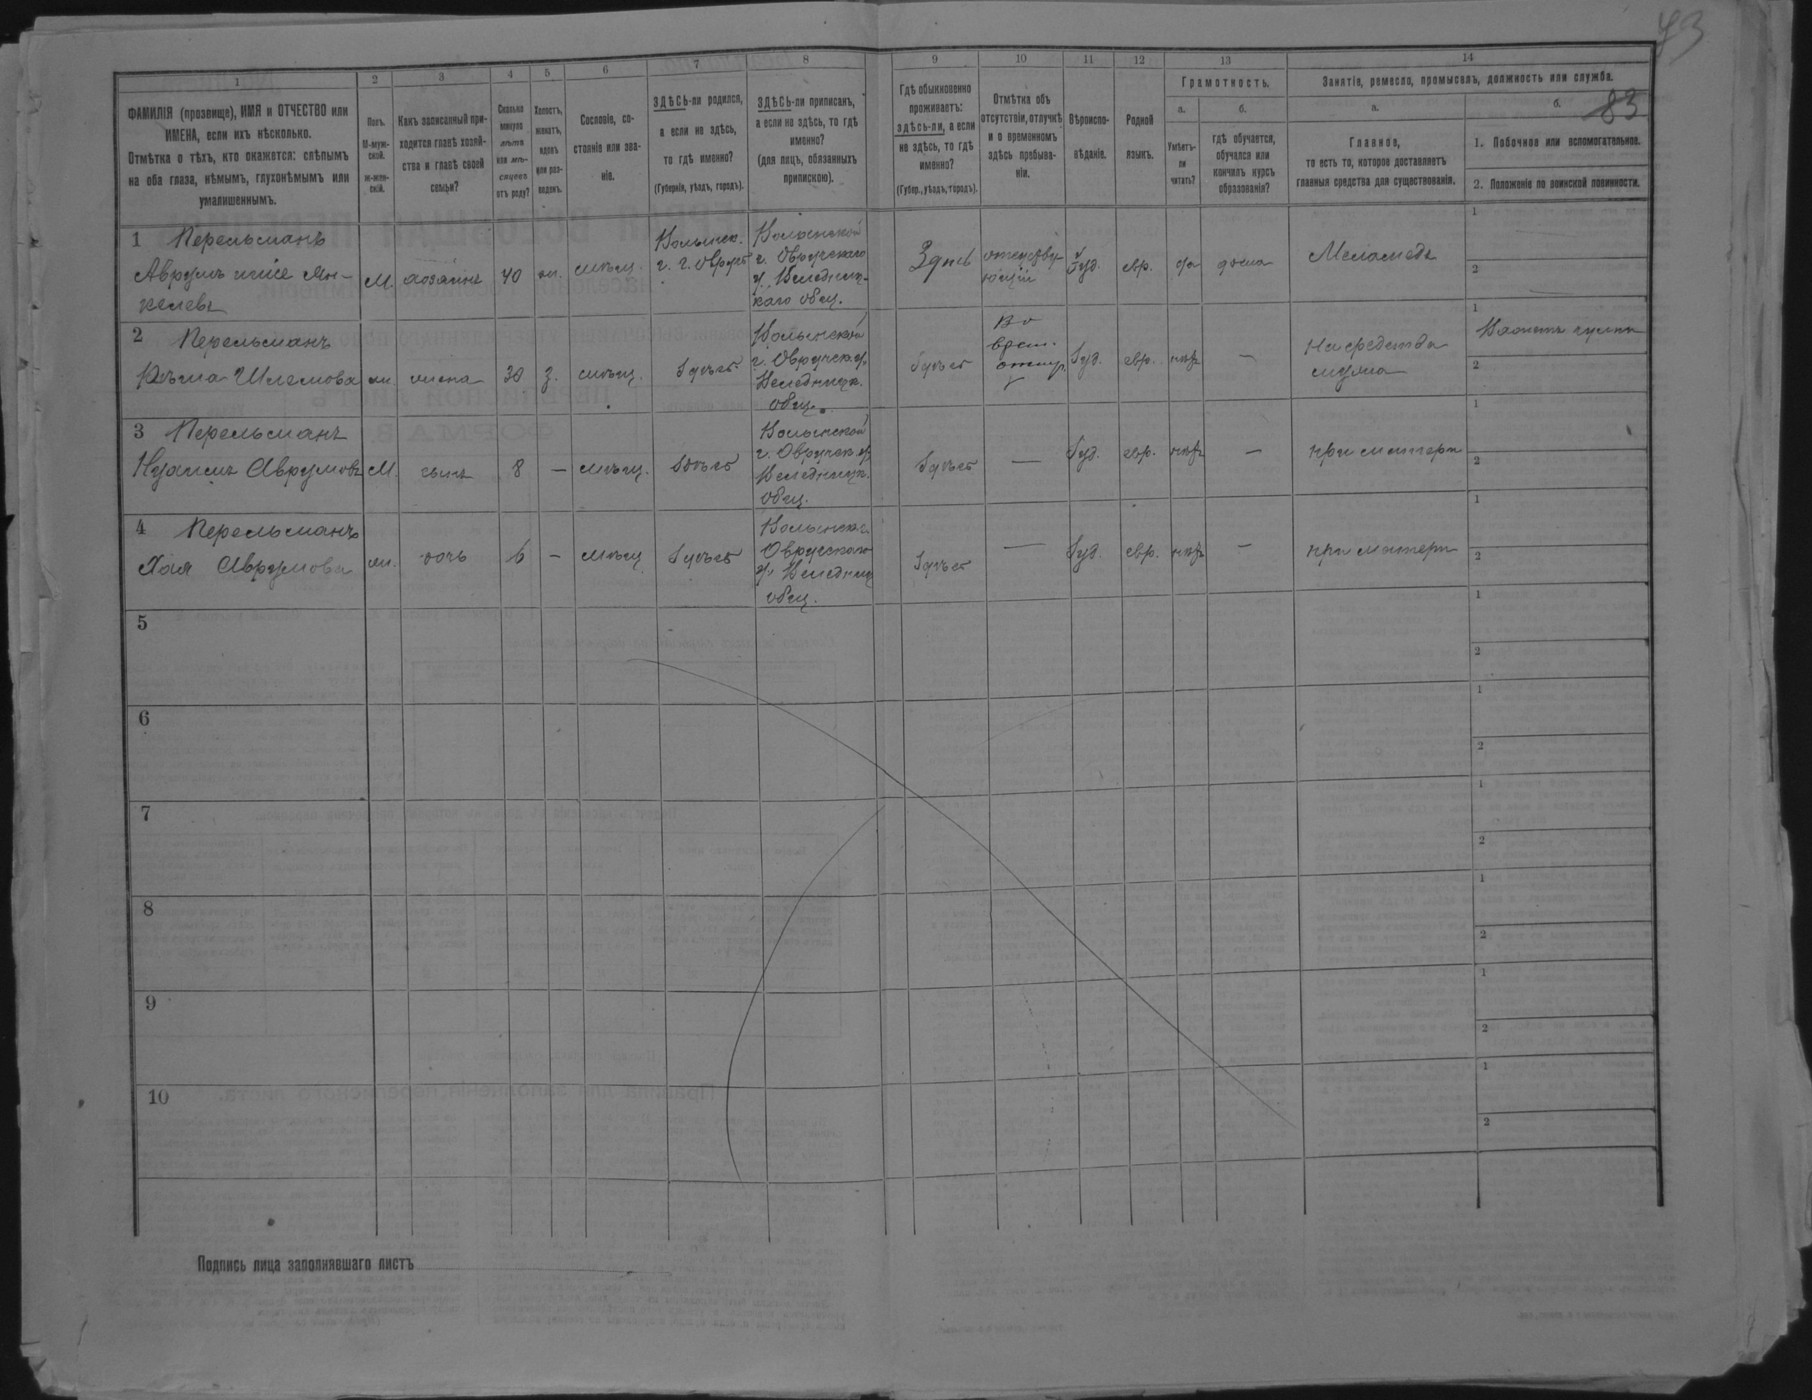 43
83
1
2
3
4
5
6
7
8
9
10
11
12
13
14
ФАМИЛІЯ (прозвище), ИМЯ и ОТЧЕСТВО или
ИМЕНА, если ихъ нѣсколько.
Отмѣтка о тѣхъ, кто окажется: слѣпымъ
на оба глаза, нѣмымъ, глухонѣмымъ или
умалишеннымъ.
Полъ.
М-муж-
ской.
ж-жен-
скій.
Какъ записанный при-
ходится главѣ хозяй-
ства и главѣ своей
семьи?
Сколько
минуло
лѣтъ
или мѣ-
сяцевъ
отъ роду?
Холостъ,
женатъ,
вдовъ
или раз-
веденъ.
Сословіе, со-
стояніе или зва-
ніе.
ЗДѢСЬ-ли родился,
а если не здѣсь,
то гдѣ именно?
(Губернія, уѣздъ, городъ).
ЗДѢСЬ-ли приписанъ,
а если не здѣсь, то гдѣ
именно?
(для лицъ, обязанныхъ
припискою).
Гдѣ обыкновенно
проживаетъ:
здѣсь-ли, а если
не здѣсь, то гдѣ
именно?
(Губер., уѣздъ, городъ).
Отмѣтка объ
отсутствіи, отлучкѣ
и о временномъ
здѣсь пребыва-
ніи.
Вѣроиспо-
вѣданіе.
Родной
языкъ.
Грамотность.
а.
Умѣетъ-
ли
читать?
б.
гдѣ обучается,
обучался или
кончилъ курсъ
образованія?
Занятія, ремесло, промыселъ, должность или служба.
а.
Главное,
то есть то, которое доставляетъ
главныя средства для существованія.
б.
1. Побочное или вспомогательное.
2. Положеніе по воинской повинности.
1 Перельманъ
Аврумъ Янкелевъ
М хозяинъ 40 мѣщ.
Волынск.
г. г. Овручъ
Волынской
г. Овручскаго
у. Веледниц-
каго общ.
Здѣсь
отсутству-
ющій
Іуд. евр. да дома
Меламедъ
1
2
2 Перельманъ
Шлемова жена 30 з. мѣщ. Здѣсь
Волынской
г. Овручск. у.
Веледницк.
общ.
Здѣсь
Іуд. евр. нѣт —
На средства
мужа
1
2
3 Перельманъ
Аврумовъ М. сынъ 8 — мѣщ. Здѣсь
Волынской
г. Овручск. у.
Веледницк.
общ.
Здѣсь — Іуд. евр. нѣт —
при матери
1
2
4 Перельманъ
Хая Аврумова дочь 6 — мѣщ Здѣсь
Волынск. г.
Овручскаго
у. Веледниц
общ.
Здѣсь — Іуд. евр. нѣт —
при матери
1
2
5
1
2
6
1
2
7
1
2
8
1
2
9
1
2
10
1
2
Подпись лица заполнявшаго листъ